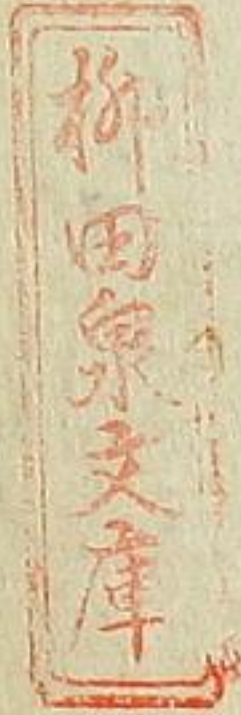 柳田泉文庫